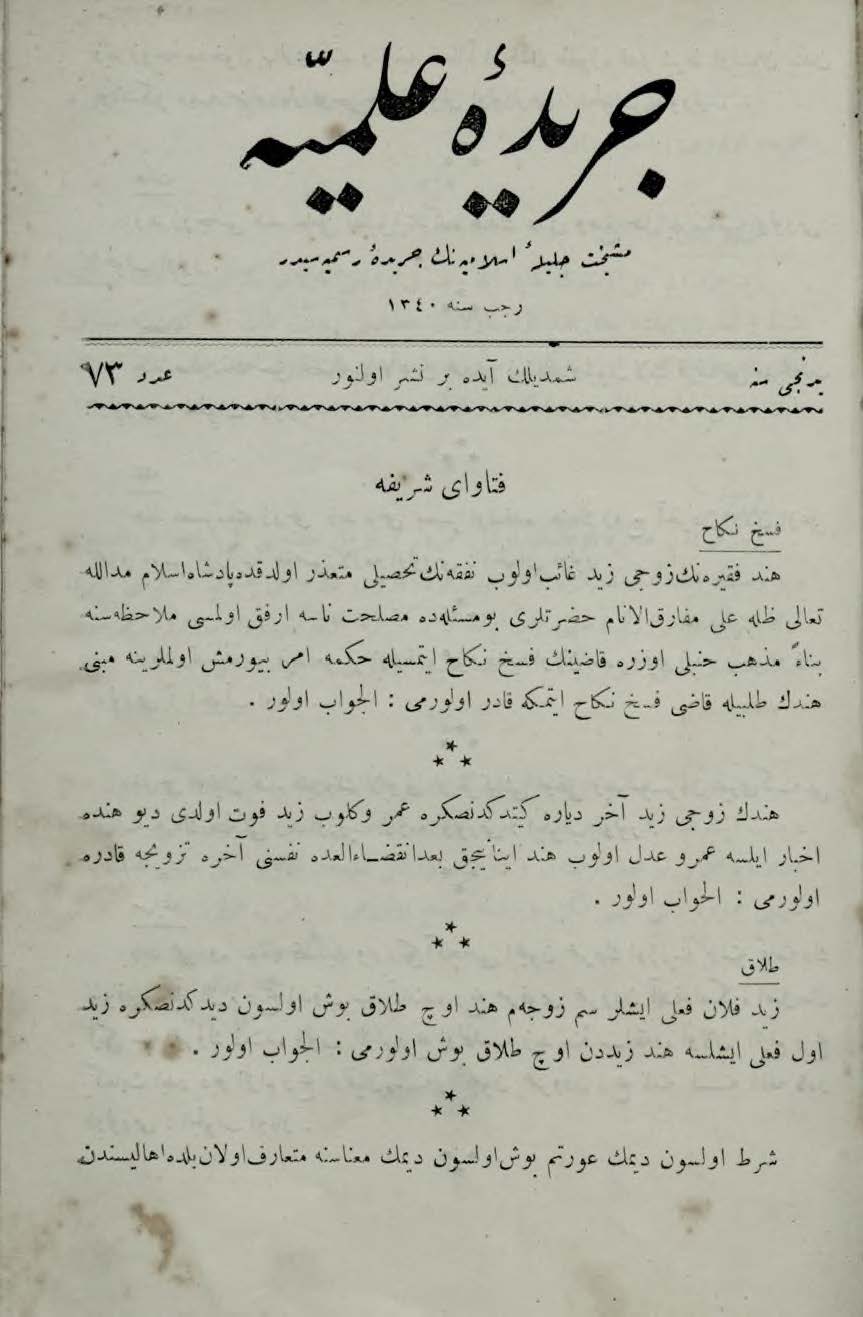 جريدۀ علميّه
مشيخت جليلۀ اسلاميه‌نك جريدۀ رسميه‌سيدر
رجب سنه ١٣٤٠
يدنجی سنه
شمديلك آيده بر نشر اولنور
عدد ٧٣
فتاوای شريفه
فسخ نكاح
هند فقيره‌نك زوجی زيد غائب اولوب نفقه‌نك تحصيلی متعذر اولدقده پادشاه اسلام مدالله
تعالی ظله علی مفارق الانام حضرتلری بو مسئله‌ده مصلحت ناسه ارفق اولمسی ملاحظه‌سنه
بناءً مذهب حنبلی اوزره قاضينك فسخ نكاح ايتمسيله حكمه امر بيورمش اولملرينه مبنی
هندك طلبيله قاضی فسخ نكاح ايتمكه قادر اولورمی : الجواب اولور .
هندك زوجی زيد آخر دياره كيتدكدنصكره عمر وكلوب زيد فوت اولدی ديو هنده
اخبار ايلسه عمرو عدل اولوب هند اينانيجق بعدانقضـاءالعده نفسنی آخره تزويجه قادره
اولورمی : الجواب اولور .
طلاق
زيد فلان فعلی ايشلر سم زوجه‌م هند اوچ طلاق بوش اولسون ديدكدنصكره زيد
اول فعلی ايشلسه هند زيددن اوچ طلاق بوش اولورمی : الجواب اولور .
شرط اولسون ديمك عورتم بوش اولسون ديمك معناسنه متعارف اولان بلده اهاليسندن